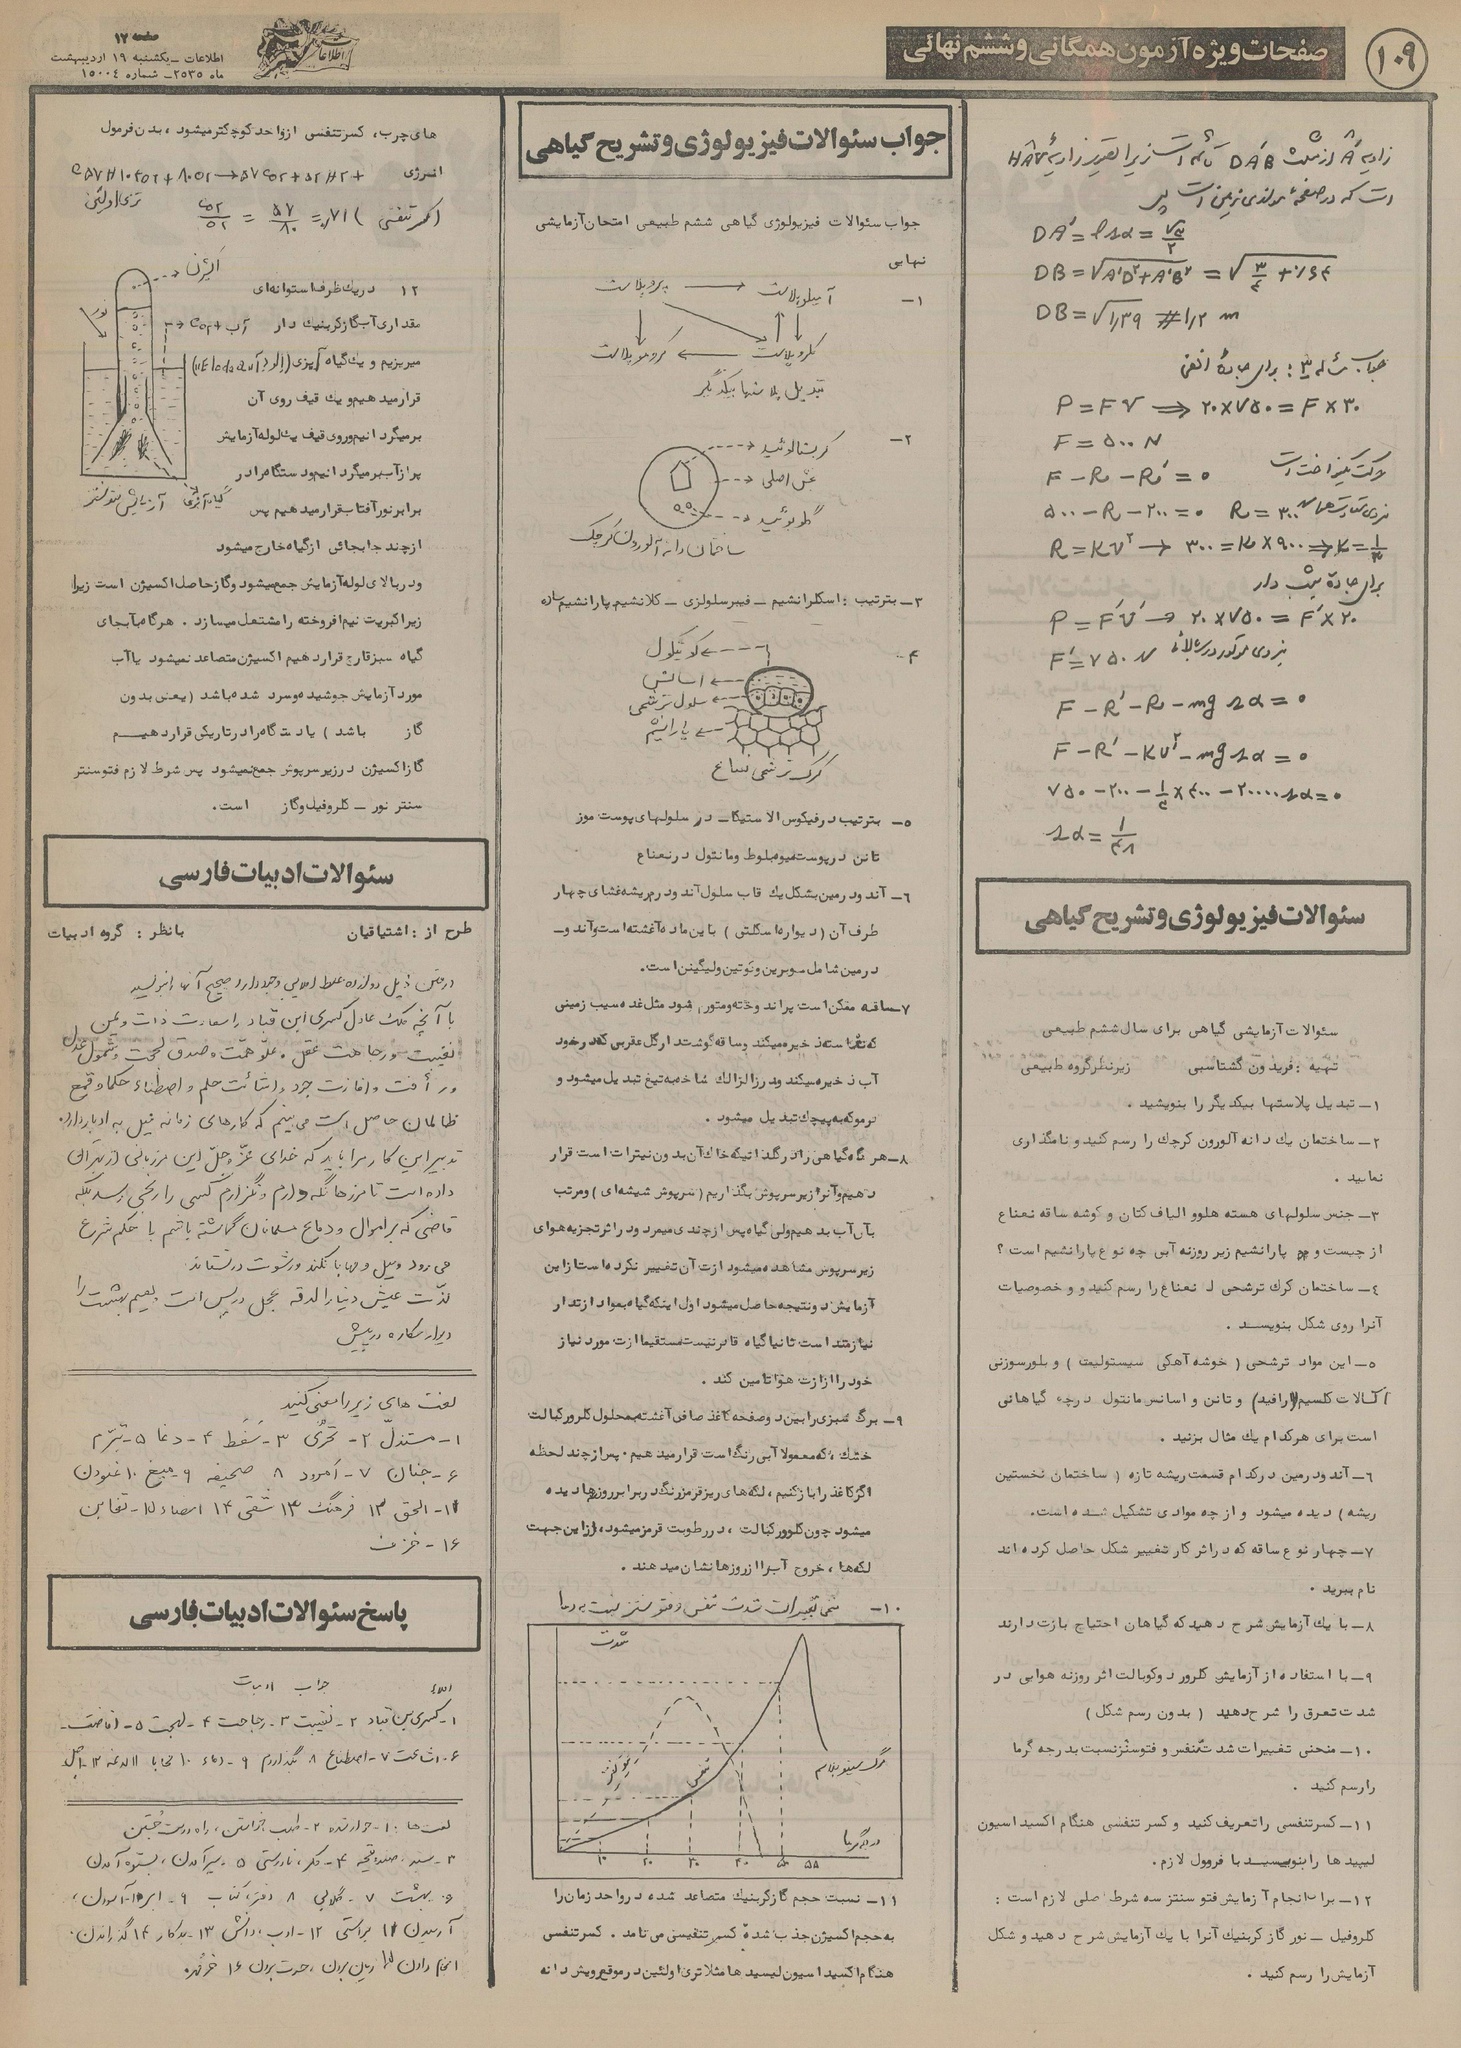 ۱۰۹
صفحات ویژه آزمون همگانی و ششم نهائی
اطلاعات
صفحه ۱۲
اطلاعات – یکشنبه ۱۹ اردیبهشت
ماه ۲۵۳۵– شماره ۱۵۰۰۴
است که در صفحه موازی زمین است پس
DB = √A'D²+A'B² =
جواب مسئله ۳: برای جاده افقی
P = FV ⇒ ۲۰×۷۵۰ = F×۳۰
F = ۵۰۰ N
حرکت یکنواخت است
F – R – R' = ۰
۵۰۰ – R – ۲۰۰ = ۰ R = ۳۰۰
R = KV² → ۳۰۰ = K×۹۰۰ ⇒ K = ۱/۳
برای جاده شیب دار
P = F'V' → ۲۰×۷۵۰ = F'×۲۰
F' = ۷۵۰ N
F – R' – R – mg sα = ۰
F – R' – KV² – mg sα = ۰
sα = ۱/۴۸
سئوالات فیزیولوژی و تشریح گیاهی
سئوالات آزمایشی گیاهی برای سال ششم طبیعی
تهیه : فریدون گشتاسبی زیرنظر گروه طبیعی
۱– تبدیل پلاستها بیکدیگر را بنویسید .
۲– ساختمان یک دانه آلورون کرچک را رسم کنید و نامگذاری
نمایید .
۳– جنس سلولهای هسته هلو و الیاف کتان و گوشه ساقه نعناع
از چیست و پارانشیم زیر روزنه آبی چه نوع پارانشیم است ؟
۴– ساختمان کرک ترشحی نعناع را رسم کنید و و خصوصیات
آنرا روی شکل بنویسید .
۵– این مواد ترشحی ( خوشه آهکی سیستولیت ) و بلور سوزنی
اکسالات کلسیم (رافید) و تانن و اسانس مانتول در چه گیاهانی
است برای هرکدام یک مثال بزنید .
۶– آندودرمین درکدام قسمت ریشه تازه ( ساختمان نخستین
ریشه) دیده میشود و از چه موادی تشکیل شده است.
۷– چهار نوع ساقه که در اثر کار تغییر شکل حاصل کرده اند
نام ببرید .
۸– با یک آزمایش شرح دهید که گیاهان احتیاج بازت دارند
۹– با استفاده از آزمایش کلرور دوکوبالت اثر روزنه هوایی در
شدت تعرق را شرح دهید ( بدون رسم شکل )
۱۰– منحنی تغییرات شدت تنفس و فتوسنتز نسبت بدرجه گرما
را رسم کنید .
۱۱– کسر تنفسی را تعریف کنید و کسر تنفسی هنگام اکسیداسیون
لیپید ها را بنویسید با فروول لازم.
۱۲– برای انجام آزمایش فتو سنتز سه شرط اصلی لازم است :
کلروفیل – نور گاز کربنیک آنرا با یک آزمایش شرح دهید و شکل
آزمایش را رسم کنید .
جواب سئوالات فیزیولوژی و تشریح گیاهی
جواب سئوالات فیزیولوژی گیاهی ششم طبیعی امتحان آزمایشی
نهایی
۱– آمیلوپلاست پروپلاست
کلروپلاست کروموپلاست
تبدیل پلاستها بیکدیگر
۲– کریستالوئید
بخش اصلی
گلوبوئید
ساختمان دانه آلورون کرچک
۳– بترتیب : اسکلرانشیم – فیبر سلولزی – کلانشیم پارانشیم ساده
۴– کوتیکول
اسانس
سلول ترشحی
پارانشیم
کرک ترشحی نعناع
۵– بترتیب در فیکوس الاستیکا – در سلولهای پوست موز
تانن در پوست میوه بلوط و مانتول در نعناع
۶– آندودرمین بشکل یک قاب سلول آندودرم ریشه غشای چهار
طرف آن ( دیواره اسکلتی ) با این ماده آغشته است و آندو–
درمین شامل سوبرین و کوتین و لیگنین است.
۷– ساقه ممکن است پراندوخته و متورم شود مثل غده سیب زمینی
که نشاسته ذخیره میکند و ساقه گوشتدار گل عقربی که در خود
آب ذخیره میکند و در زالزالک شاخه به تیغ تبدیل میشود و
در مو که به پیچک تبدیل میشود .
۸– هر گاه گیاهی را در گلدانیکه خاک آن بدون نیترات است قرار
دهیم و آنرا زیر سرپوش بگذاریم ( سرپوش شیشه ای ) و مرتب
بآن آب بدهیم ولی گیاه پس از چندی میمیرد و در اثر تجزیه هوای
زیر سرپوش مشاهده میشود ازت آن تغییر نکرده است از این
آزمایش دو نتیجه حاصل میشود اول اینکه گیاه بمواد ازتدار
نیازمند است ثانیا گیاه قادر نیست مستقیما ازت مورد نیاز
خود را از ازت هوا تامین کند .
۹– برگ سبزی را بین دو صفحه کاغذ صافی آغشته بمحلول کلرور کبالت
خشک ، که معمولا آبی رنگ است قرار میدهیم . پس از چند لحظه
اگر کاغذ را باز کنیم ، لکه های ریز قرمز رنگ در برابر روزنها دیده
میشود چون کلرور کبالت ، در رطوبت قرمز میشود ، از این جهت
لکه ها ، خروج آب را از روزنها نشان میدهند .
۱۰– منحنی تغییرات شدت تنفس و فتوسنتز نسبت به دما
شدت
فتوسنتز
تنفس
مرگ سیتوپلاسم
درجه گرما
۱۰ ۲۰ ۳۰ ۴۰ ۵۰ ۵۵
۱۱– نسبت حجم گاز کربنیک متصاعد شده در واحد زمان را
به حجم اکسیژن جذب شده کسر تنفسی می نامد . کسر تنفسی
هنگام اکسیداسیون لیپید ها مثلا تری اولئین در موقع رویش دانه
های چرب ، کسر تنفسی از واحد کوچکتر میشود ، بدین فرمول
انرژی + C۵۷H۱۰۴O۶ + ۸۰O۲ → ۵۷CO۲ + ۵۲H۲O
تری اولئین
(کسر تنفسی) ۰/۷۱ = ۵۷/۸۰ = CO۲/O۲
اکسیژن
نور
آب + CO۲
گیاه آبزی
آزمایش فتوسنتز
۱۲ در یک ظرف استوانه ای
مقداری آب گاز کربنیک دار
میریزیم و یک گیاه آبزی (الودآ Elodea)
قرار میدهیم و یک قیف روی آن
برمیگردانیم و روی قیف یک لوله آزمایش
پر از آب برمیگردانیم و دستگاه را در
برابر نور آفتاب قرار میدهیم پس
از چند جابجائی از گیاه خارج میشود
و در بالای لوله آزمایش جمع میشود و گاز حاصل اکسیژن است زیرا
زیرا کبریت نیم افروخته را مشتعل میسازد . هرگاه بجای
گیاه سبز قارچ قرار دهیم اکسیژن متصاعد نمیشود یا آب
مورد آزمایش جوشیده و سرد شده باشد ( یعنی بدون
گاز باشد ) یا دستگاه را در تاریکی قرار دهیم
گاز اکسیژن در زیر سرپوش جمع نمیشود پس شرط لازم فتوسنتر
سنتر نور – کلروفیل و گاز است .
سئوالات ادبیات فارسی
طرح از : اشتیاقیان بانظر : گروه ادبیات
در متن ذیل دوازده غلط املایی وجود دارد صحیح آنها را بنویسید
با آنچه ملک عادل کسری ابن قباد را سعادت ذات و یمن
نقیبت و رجاحت عقل و علو همت و صدق لهجت و شمول عدل
و رأفت و افاضت جود و اشاعت حلم و اصطناع حکما و قمع
ظالمان حاصل است می بینم که کارهای زمانه میل به ادبار دارد.
تدبیر این کار مرا باید که خدای عزّ و جلّ این مرزبانی از بهر آن
داده است تا مرزها نگه دارم و نگزارم کسی را رنجی رسد بلکه
قاضی که بر اموال و دماء مسلمانان گماشته باشم با حکم شرع
می رود و میل و مهابا نکند و رشوت نستاند
لذّت عیش دنیا را لدغه عجل در پس است و نعیم بهشت را
دیوار مکاره در پیش
لغت های زیر را معنی کنید
۱– مستذلّ ۲– تحرّی ۳– سَقَط ۴– دغا ۵– تبرّم
۶– جنان ۷– امرود ۸ صحیفه ۹– میغ ۱۰ غنودن
۱۱– الحق ۱۲ فرهنگ ۱۳ شقی ۱۴ امضاء ۱۵– تغابن
۱۶– خزف
پاسخ سئوالات ادبیات فارسی
جواب ادبیات
املاء
۱– کسری بن قباد ۲– نقیبت ۳– رجاحت ۴– لهجت ۵– افاضت–
۶– اشاعت ۷– اصطناع ۸ نگذارم ۹– دماء ۱۰ محابا ۱۱ لدغه ۱۲– اجل
لغت ها : ۱– خوار شده ۲– طلب کردن، راه درست جُستن
۴– مکر، نادرستی ۵ سیر آمدن، بستوه آمدن
۶– بهشت ۷– گلابی ۸ دفتر، کتاب ۹– ابر ۱۰– آسودن،
آرمیدن ۱۱ براستی ۱۲– ادب، دانش ۱۳– بدکار ۱۴ گذراندن،
انجام دادن ۱۵ زیان بردن، حسرت بردن ۱۶ خرمهره